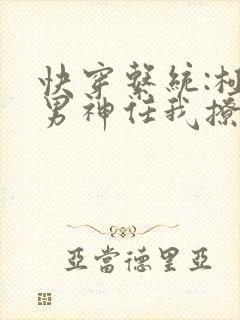 快穿系統:極
男神任我撩
亞當德里亞